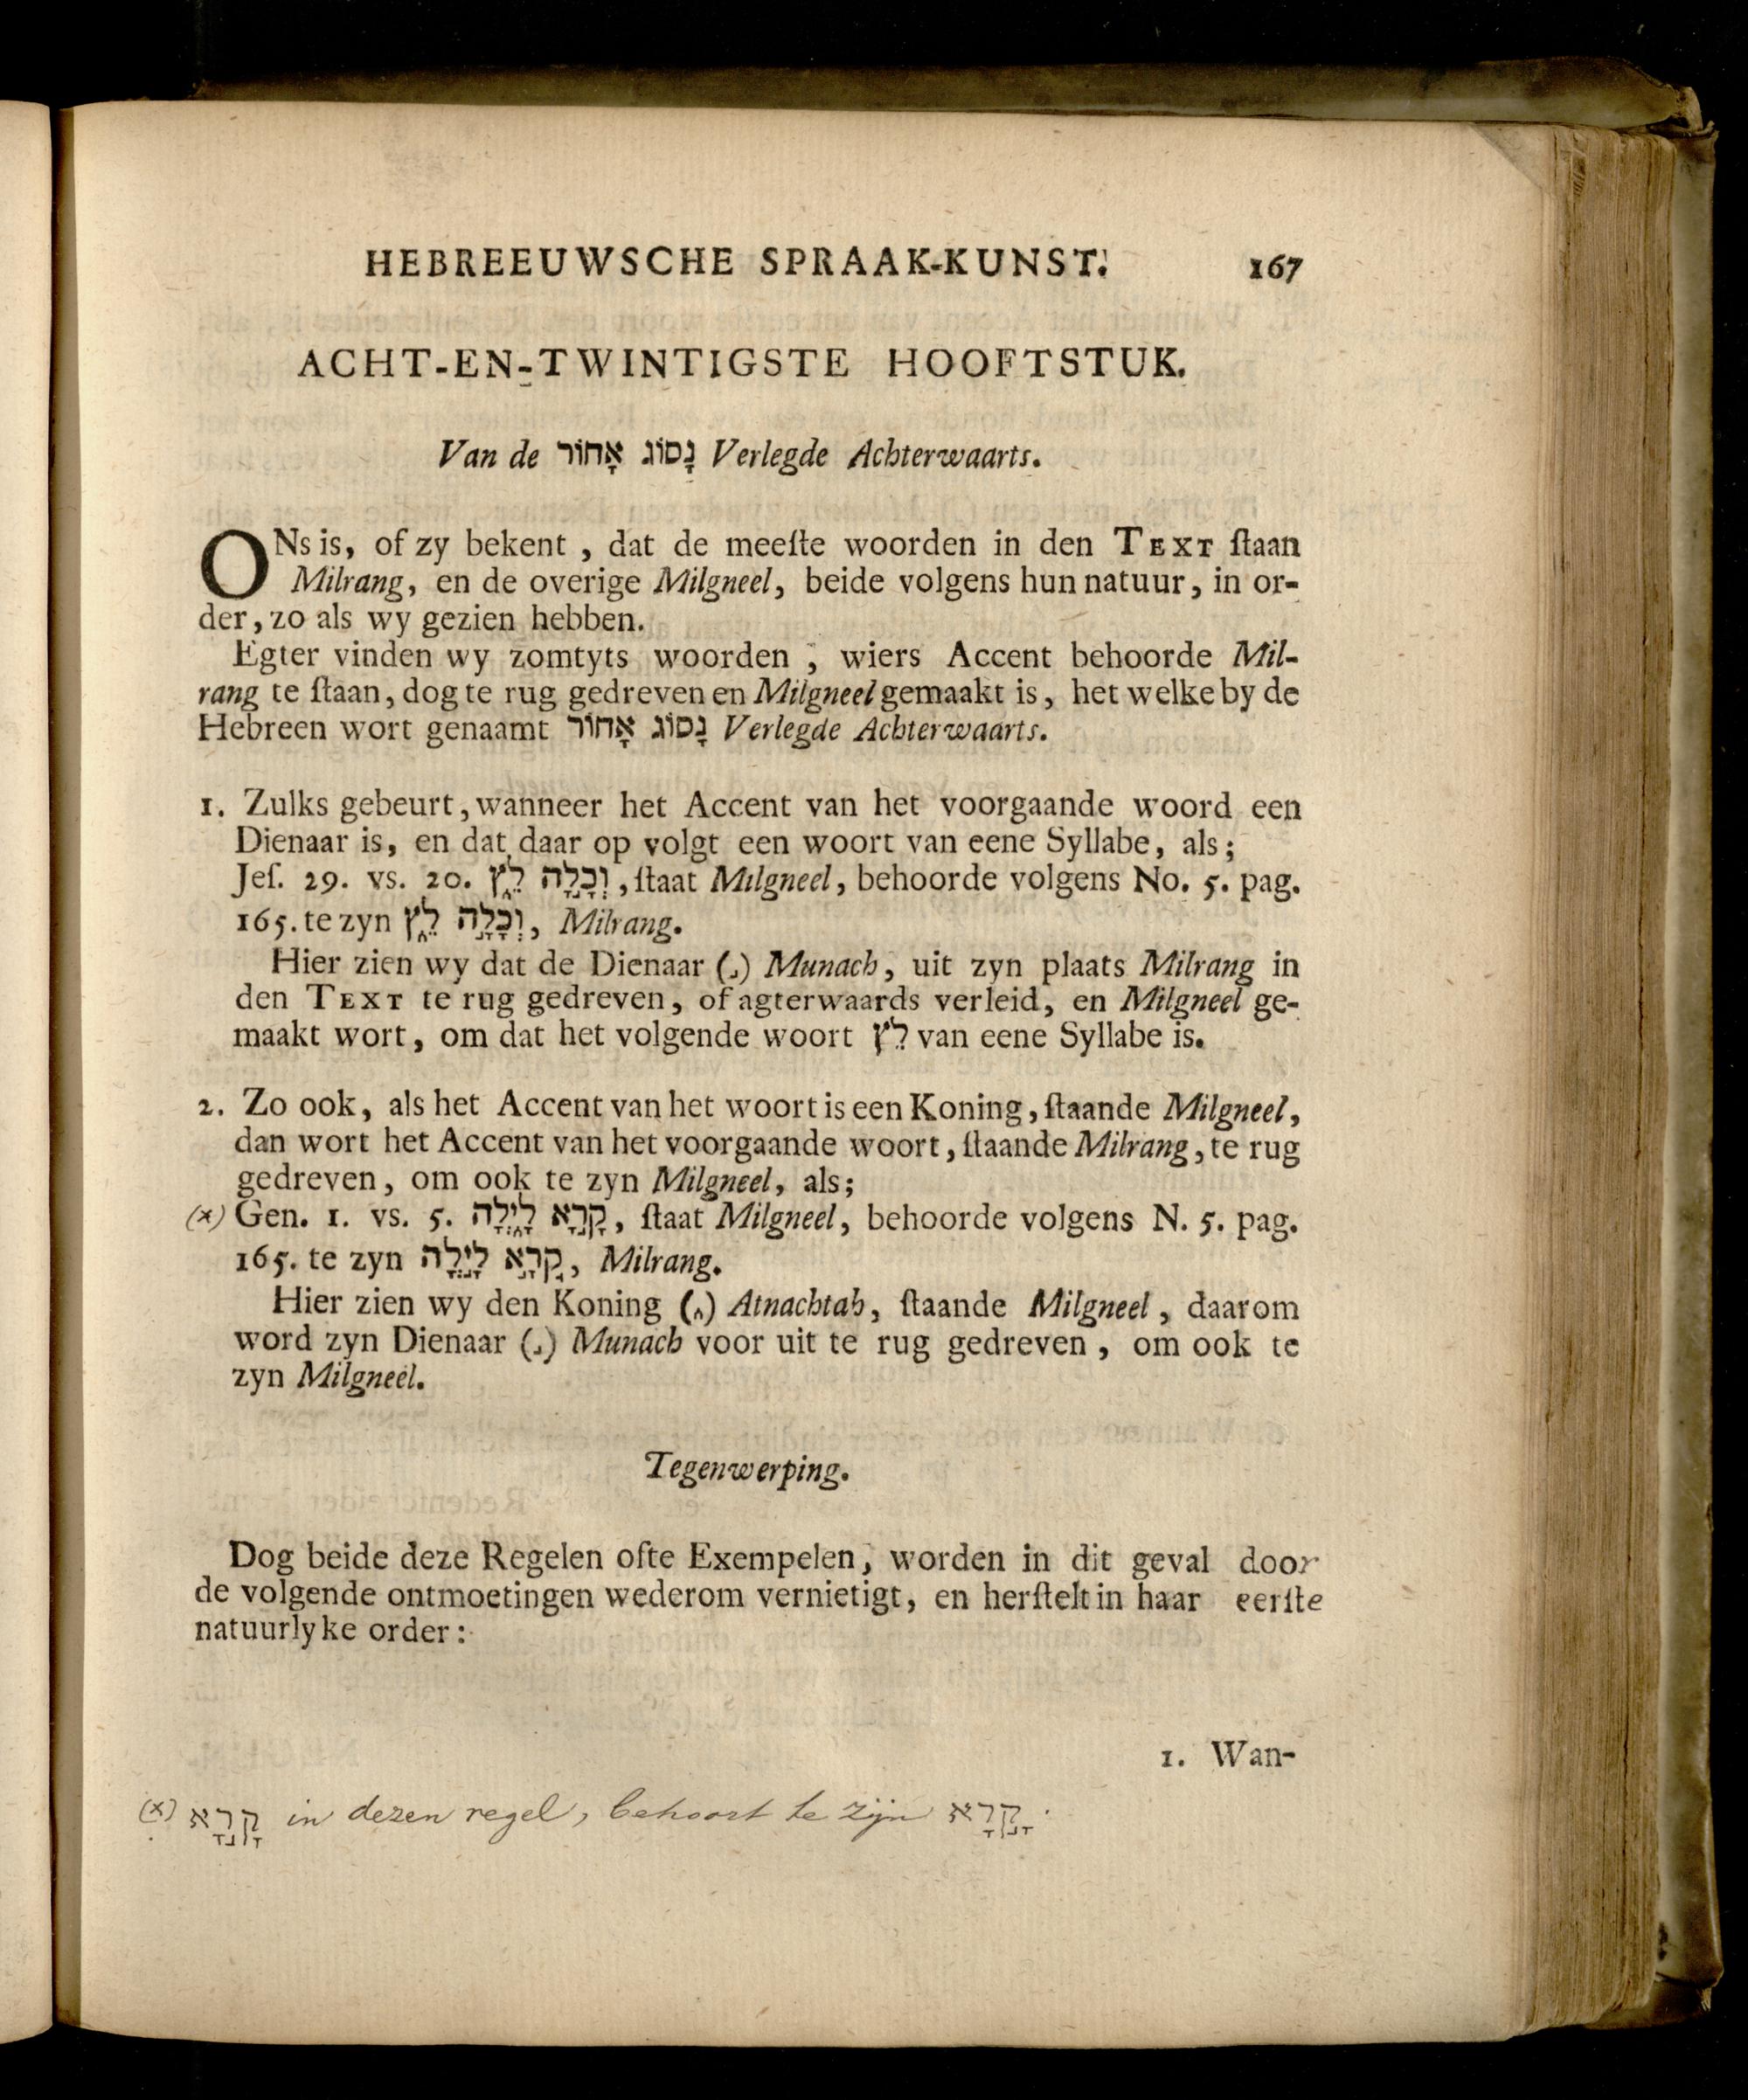 HEBREEUWSCHE SPRAAK-KUNST. 167
ACHT-EN-TWINTIGSTE HOOFTSTUK.
Van de נָסוֹג אָחוֹר Verlegde Achterwaarts.
ONs is, of zy bekent, dat de meeſte woorden in den TEXT ſtaan
Milrang, en de overige Milgneel, beide volgens hun natuur, in or-
der, zo als wy gezien hebben.
Egter vinden wy zomtyts woorden, wiers Accent behoorde Mil-
rang te ſtaan, dog te rug gedreven en Milgneel gemaakt is, het welke by de
Hebreen wort genaamt נָסוֹג אָחוֹר Verlegde Achterwaarts.
1. Zulks gebeurt, wanneer het Accent van het voorgaande woord een
Dienaar is, en dat daar op volgt een woort van eene Syllabe, als;
Jeſ. 29. vs. 20. וְכָ֣לָה לֵ֑ץ, ſtaat Milgneel, behoorde volgens No. 5. pag.
165. te zyn וְכָּלָ֣ה לֵ֑ץ, Milrang.
Hier zien wy dat de Dienaar (֣) Munach, uit zyn plaats Milrang in
den TEXT te rug gedreven, of agterwaards verleid, en Milgneel ge-
maakt wort, om dat het volgende woort לֵץ van eene Syllabe is.
2. Zo ook, als het Accent van het woort is een Koning, ſtaande Milgneel,
dan wort het Accent van het voorgaande woort, ſtaande Milrang, te rug
gedreven, om ook te zyn Milgneel, als;
(x) Gen. 1. vs. 5. קָרָ֣א לָ֑יְלָה, ſtaat Milgneel, behoorde volgens N. 5. pag.
165. te zyn קָרָ֣א לָיְ֑לָה, Milrang.
Hier zien wy den Koning (֑) Atnachtah, ſtaande Milgneel, daarom
word zyn Dienaar (֣) Munach voor uit te rug gedreven, om ook te
zyn Milgneel.
Tegenwerping.
Dog beide deze Regelen ofte Exempelen, worden in dit geval door
de volgende ontmoetingen wederom vernietigt, en herſtelt in haar eerſte
natuurlyke order:
1. Wan-
(x) קָרָ֣א in dezen regel, behoort te zijn קָ֣רָא.